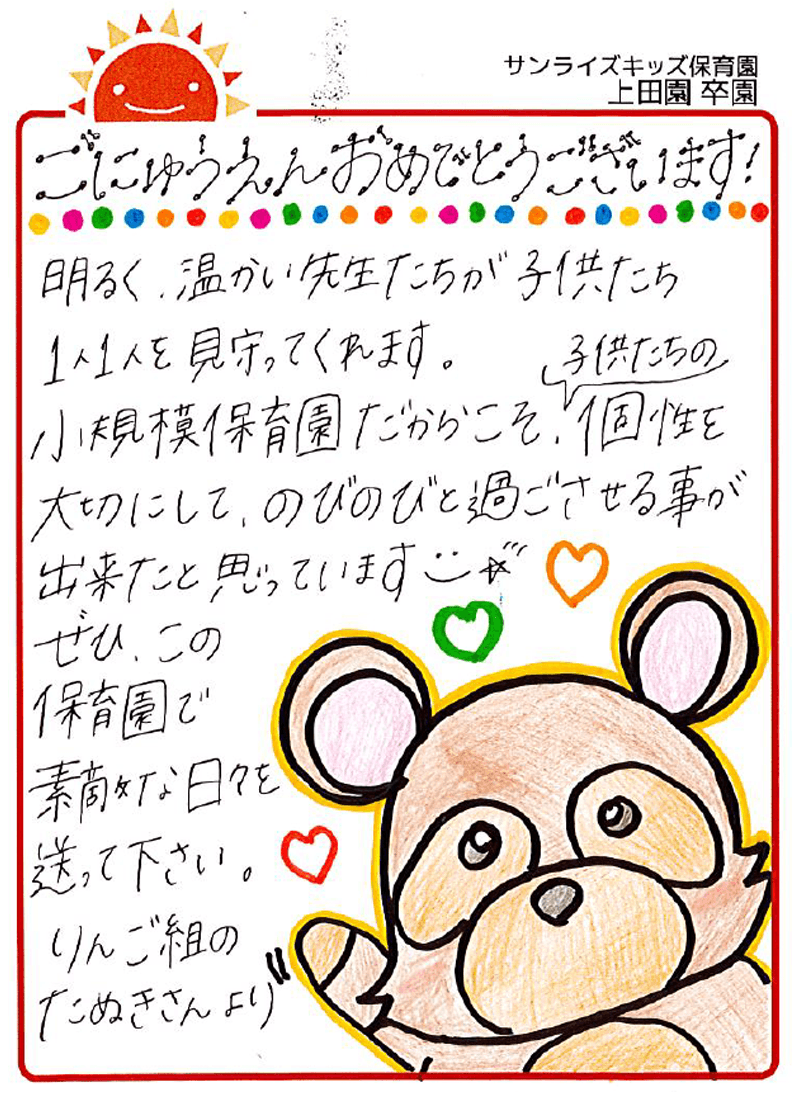 サンライズキッズ保育園
上田園 卒園
ごにゅうえんおめでとうございます!
明るく、温かい先生たちが子供たち
1人1人を見守ってくれます。
子供たちの
小規模保育園だからこそ、個性を
大切にして、のびのびと過ごさせる事が
出来たと思っています
ぜひ、この
保育園で
素敵な日々を
送って下さい。
りんご組の
たぬきさんより